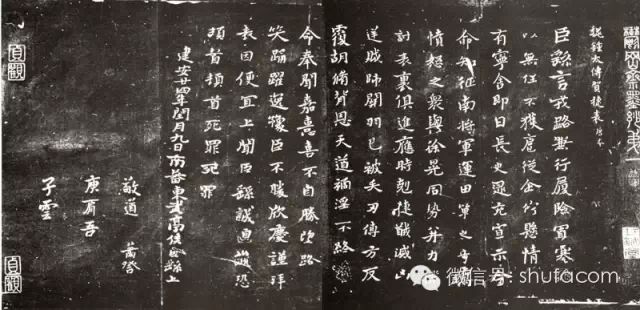 魏鍾太傅賀捷表
臣繇言戎路兼行履險冒寒
以無任不獲扈從企佇懸情
有寧舍即日長史逯充宣示令
命知征南將軍運田單之奇厲
憤怒之衆與徐晃同勢并力
討表裏俱進應時剋捷馘滅凶
逆賊帥關羽已被矢刃傅方反
覆胡脩背恩天道禍淫不終
命奉聞嘉憙喜不自勝望路
笑踊躍逸豫臣不勝欣慶謹拜
表因便宜上聞臣繇誠惶誠恐
頓首頓首死罪死罪
建安廿四年閏月九日南蕃東武亭侯臣繇上
敬道
庾肩吾
子雲
貞觀
貞觀
微信号: shufacom